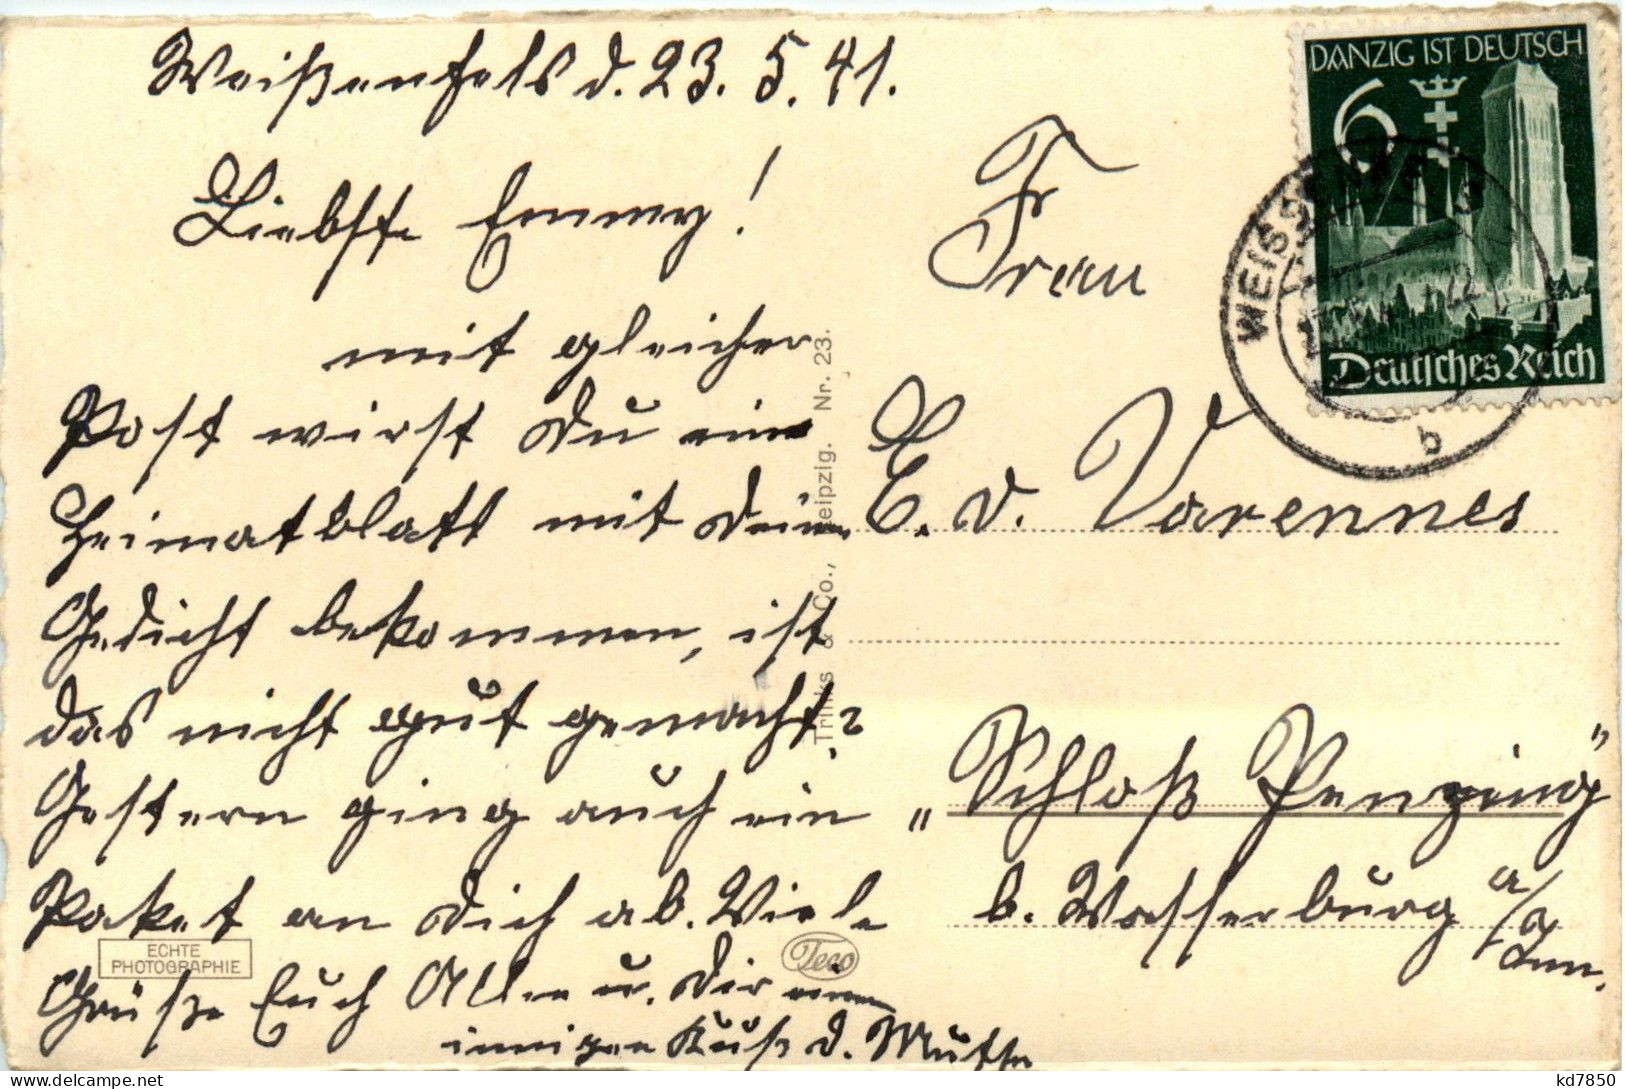 Weißenfels d. 23. 5. 41.
Liebste Emmy!
mit gleicher
Post wirst Du ein
Heimatblatt mit Deinem
Gedicht bekommen, ist
das nicht gut gemacht?
Gestern ging auch ein
Paket an Dich ab. Viele
Grüße Euch Allen u. Dir einen
innigen Kuß d. Mutter
ECHTE
PHOTOGRAPHIE
Teco
Trinks & Co., Leipzig. Nr. 23.
DANZIG IST DEUTSCH
6
Deutsches Reich
WEISSENFELS
b
Fr
Frau
E. v. Varennes
„Schloß Penzing"
b. Wasserburg a/
Inn.
kd7850